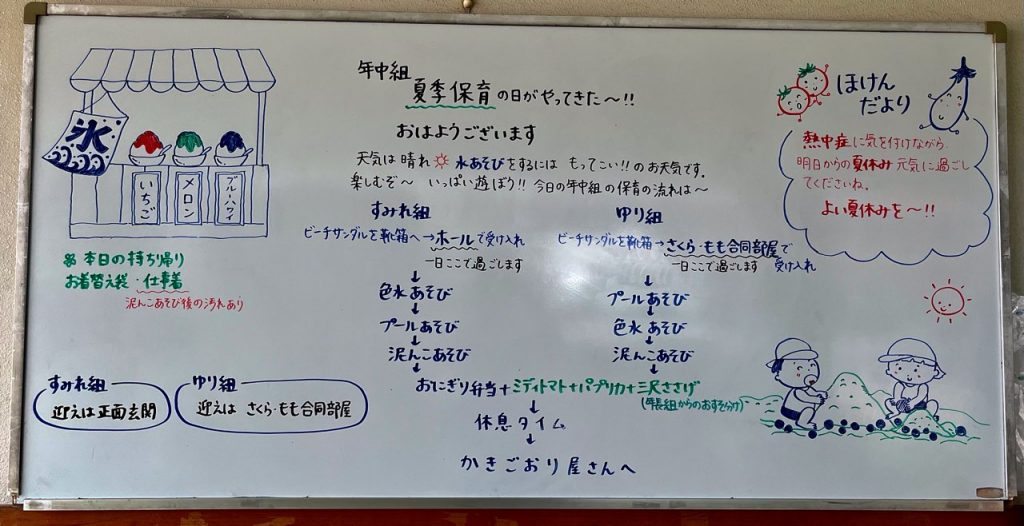 氷
いちご
メロン
ブルーハワイ
※本日の持ち帰り
お着替え袋・仕事着
泥んこあそび後の汚れあり
すみれ組
迎えは正面玄関
ゆり組
迎えは さくら・もも合同部屋
年中組
夏季保育の日がやってきた〜!!
おはようございます
天気は晴れ 水あそびをするには もってこい!!のお天気です。
楽しむぞ〜 いっぱい遊ぼう!! 今日の年中組の保育の流れは〜
すみれ組
ビーチサンダルを靴箱へ→ホールで受け入れ
一日ここで過ごします
↓
色水あそび
↓
プールあそび
↓
泥んこあそび
ゆり組
ビーチサンダルを靴箱→さくら・もも合同部屋で
一日ここで過ごします 受け入れ
↓
プールあそび
↓
色水あそび
↓
泥んこあそび
↓
おにぎり弁当+ミディトマト+パプリカ+三尺ささげ
(年長組からのおすそわけ)
↓
休息タイム
↓
かきごおり屋さんへ
ほけん
だより
熱中症に気を付けながら
明日からの夏休み 元気に過ごし
てくださいね。
よい夏休みを〜!!